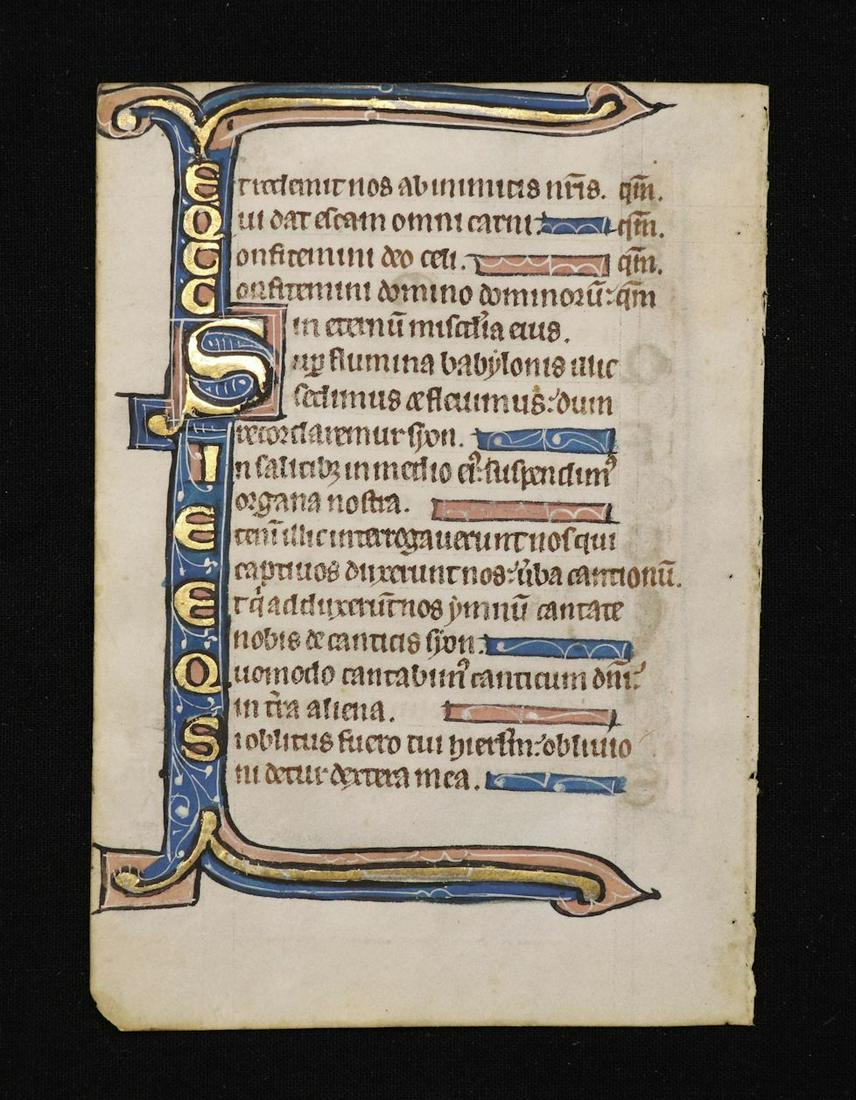 Et redemit nos ab inimicis nr̄is. qm̄.
Qui dat escam omni carni. qm̄.
Confitemini deo celi. qm̄.
Confitemini domino dominorū: qm̄
in eternū mis̄cd̄ia eius.
Sup̄ flumina babylonis illic
sedimus & fleuimus: dum
recordaremur syon.
In salicib; in medio ei9: suspendim9
organa nostra.
E illic interrogauerunt nos qui
captiuos duxerunt nos: ūba cantionū.
Et q̄ adduxerūt nos ymnū cantate
nobis de canticis syon.
Quomodo cantabim9 canticum dn̄i:
in tr̄a aliena.
Si oblitus fuero tui hierl̄m: obliuio
ni detur dextera mea.